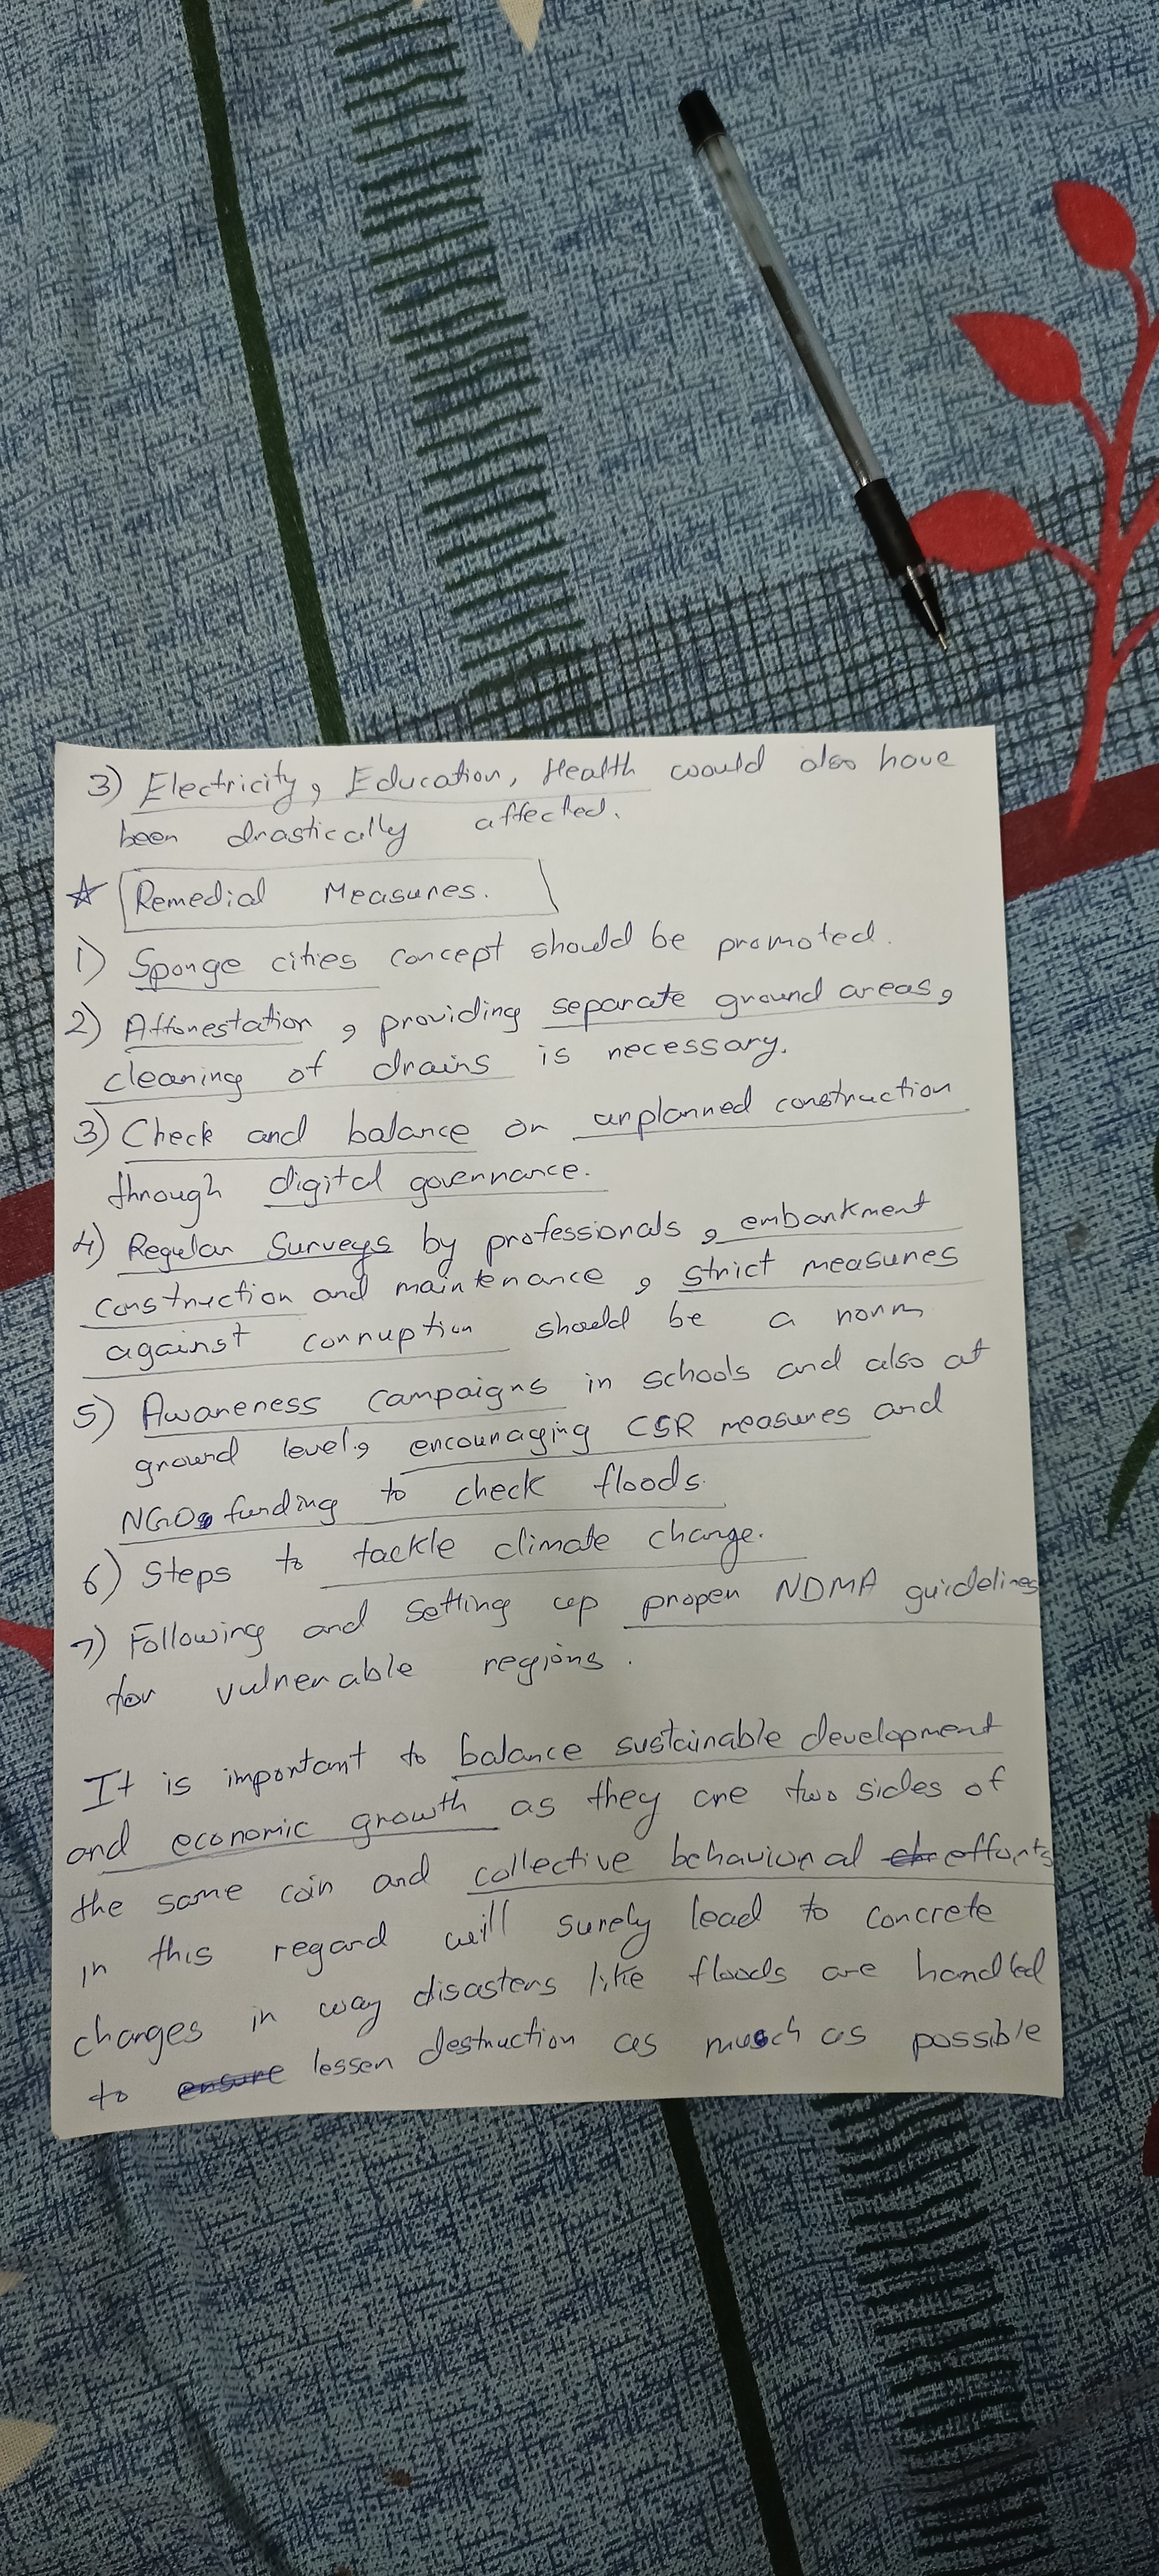 3) Electricity, Education, Health would also have
been drastically affected.
☆ Remedial Measures.
1) Sponge cities concept should be promoted.
2) Afforestation, providing separate ground areas,
cleaning of drains is necessary.
3) Check and balance on unplanned construction
through digital governance.
4) Regular Surveys by professionals, embankment
construction and maintenance, strict measures
against corruption should be a norm
5) Awareness campaigns in schools and also at
ground level, encouraging CSR measures and
NGOs funding to check floods.
6) Steps to tackle climate change.
7) Following and setting up proper NDMA guidelines
for vulnerable regions.
It is important to balance sustainable development
and economic growth as they are two sides of
the same coin and collective behavioral efforts
in this regard will surely lead to concrete
changes in way disasters like floods are handled
to ensure lessen destruction as much as possible